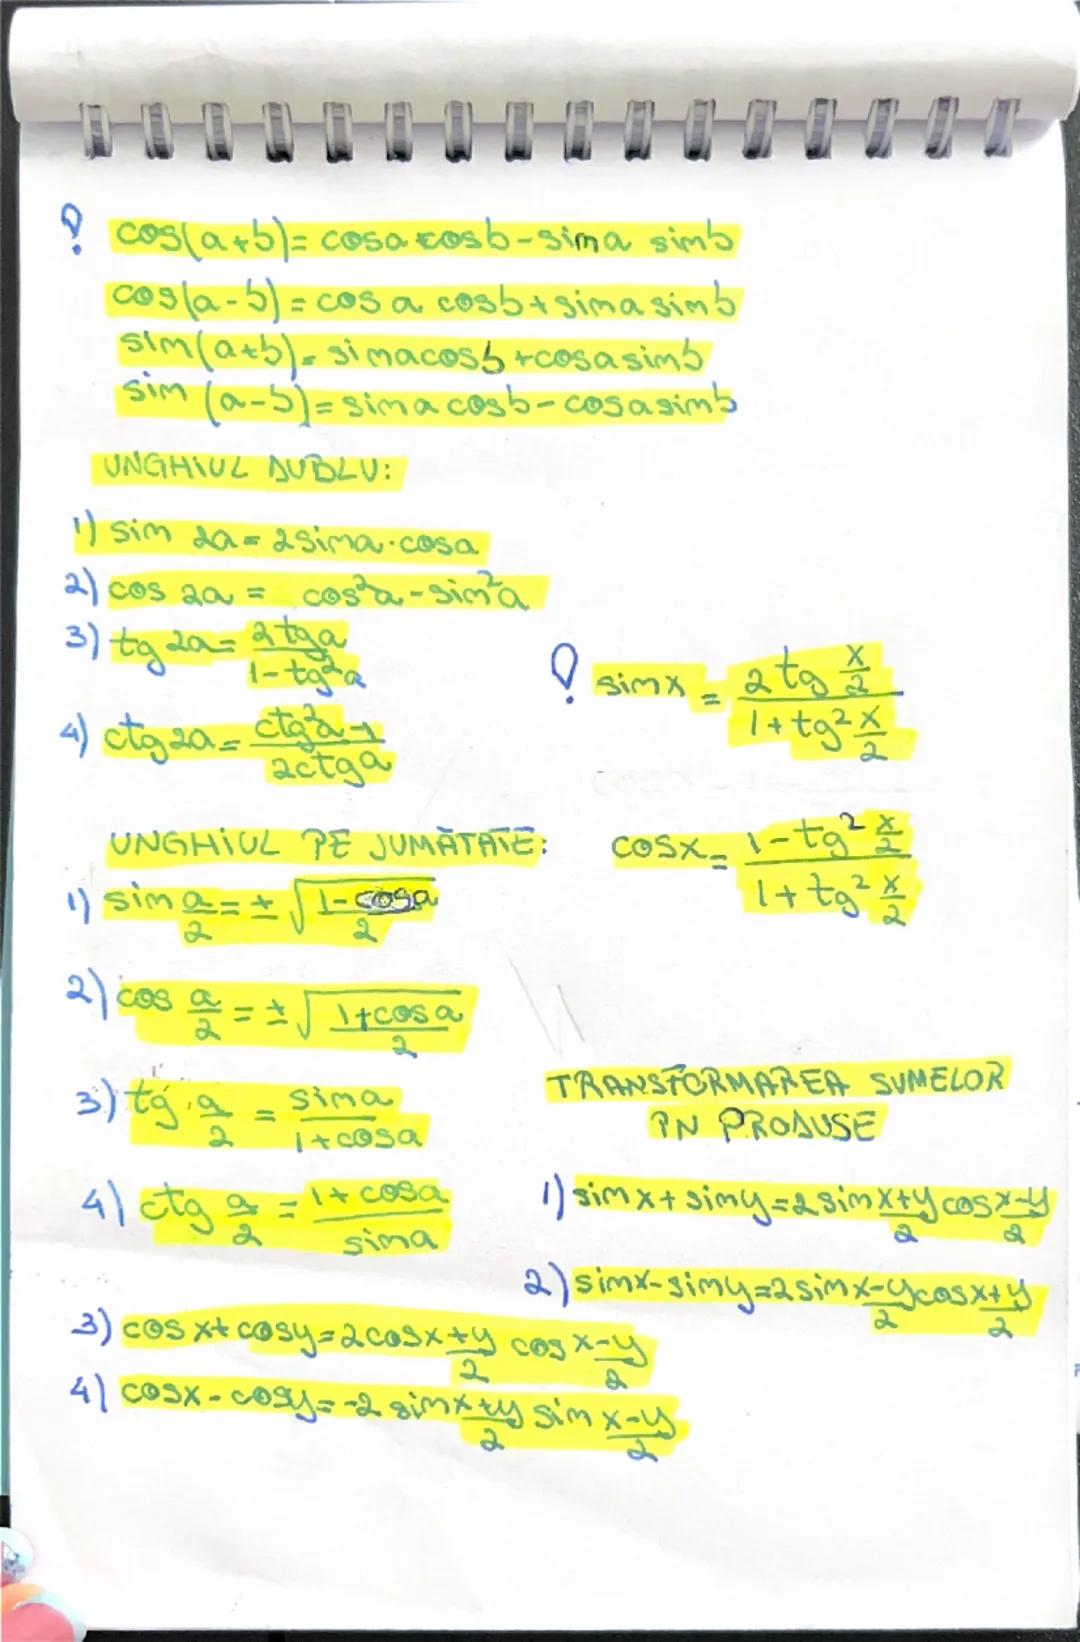 ! cos(a+b)= cosa cosb-sina sinb
cos(a-b)= cos a cosb+sina sinb
sin(a+b)= sinacosb+cosasinb
sin (a-b)= sina cosb-cosasinb
UNGHIUL DUBLU:
1) sin 2a= 2sina·cosa
2) cos 2a = cos²a-sin²a
3) tg 2a= 2tga / 1-tg²a
4) ctg2a= ctg²a-1 / 2ctga
! sinx = 2tg x/2 / 1+tg² x/2
UNGHIUL PE JUMĂTATE:
1) sin a/2 = ± √(1-cosa / 2)
2) cos a/2 = ± √(1+cosa / 2)
3) tg a/2 = sina / 1+cosa
4) ctg a/2 = 1+cosa / sina
cosx= 1-tg² x/2 / 1+tg² x/2
TRANSFORMAREA SUMELOR
ÎN PRODUSE
1) sinx+siny=2sin x+y/2 cos x-y/2
2) sinx-siny=2sin x-y/2 cos x+y/2
3) cosx+cosy=2cos x+y/2 cos x-y/2
4) cosx-cosy=-2 sin x+y/2 sin x-y/2